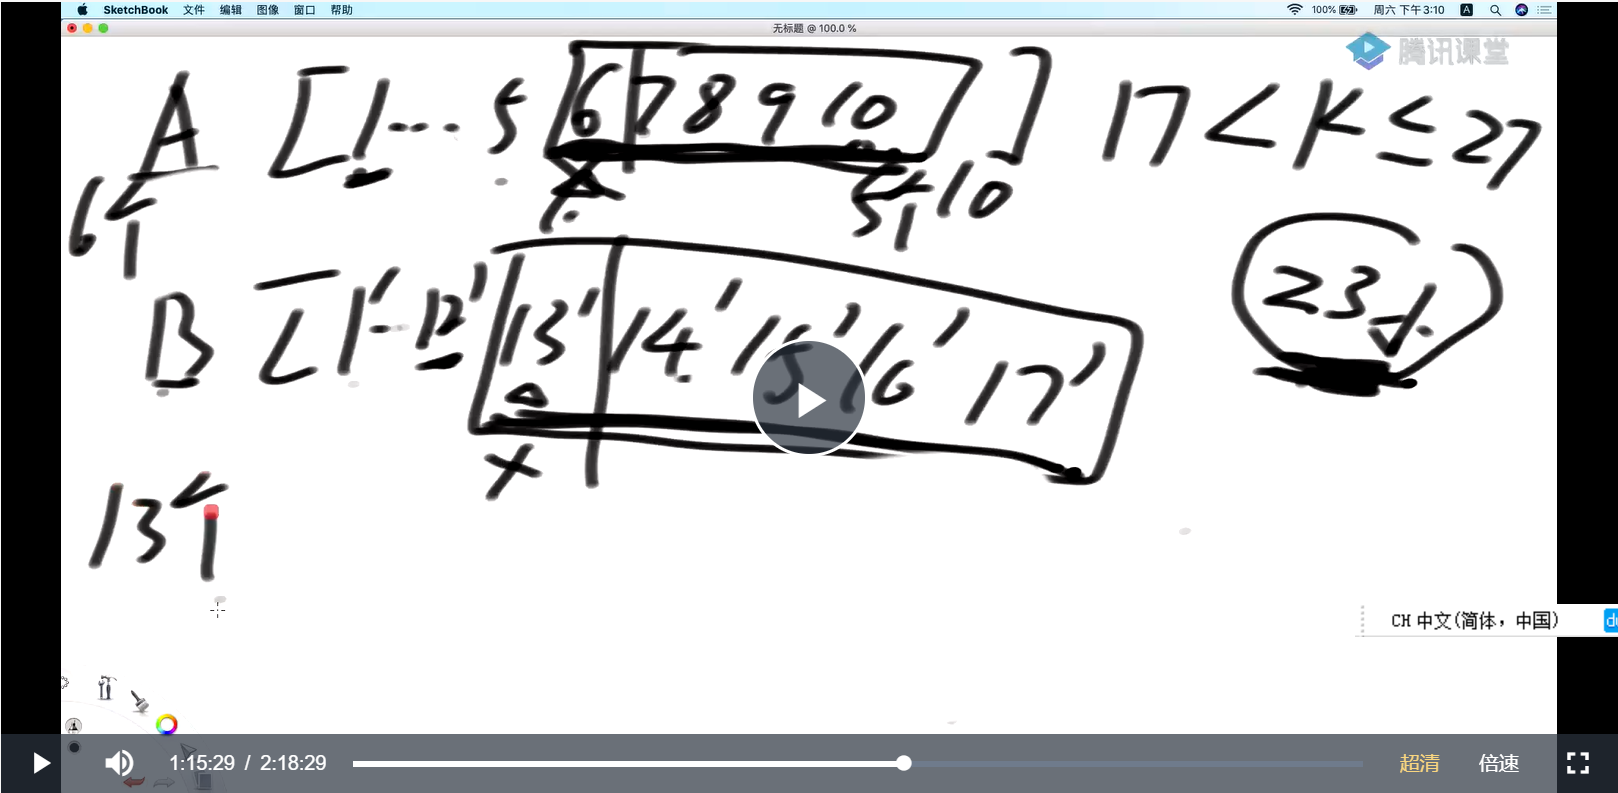 SketchBook 文件 编辑 图像 窗口 帮助 100% 周六 下午3:10 A
无标题 @ 100.0 %
腾讯课堂
A [1 … 5 6 7 8 9 10 ] 17 < K ≤ 27
6个 5个 10
23小
B [1' 12' 13' 14' 15' 16' 17'
13个
CH 中文(简体，中国)
1:15:29 / 2:18:29 超清 倍速